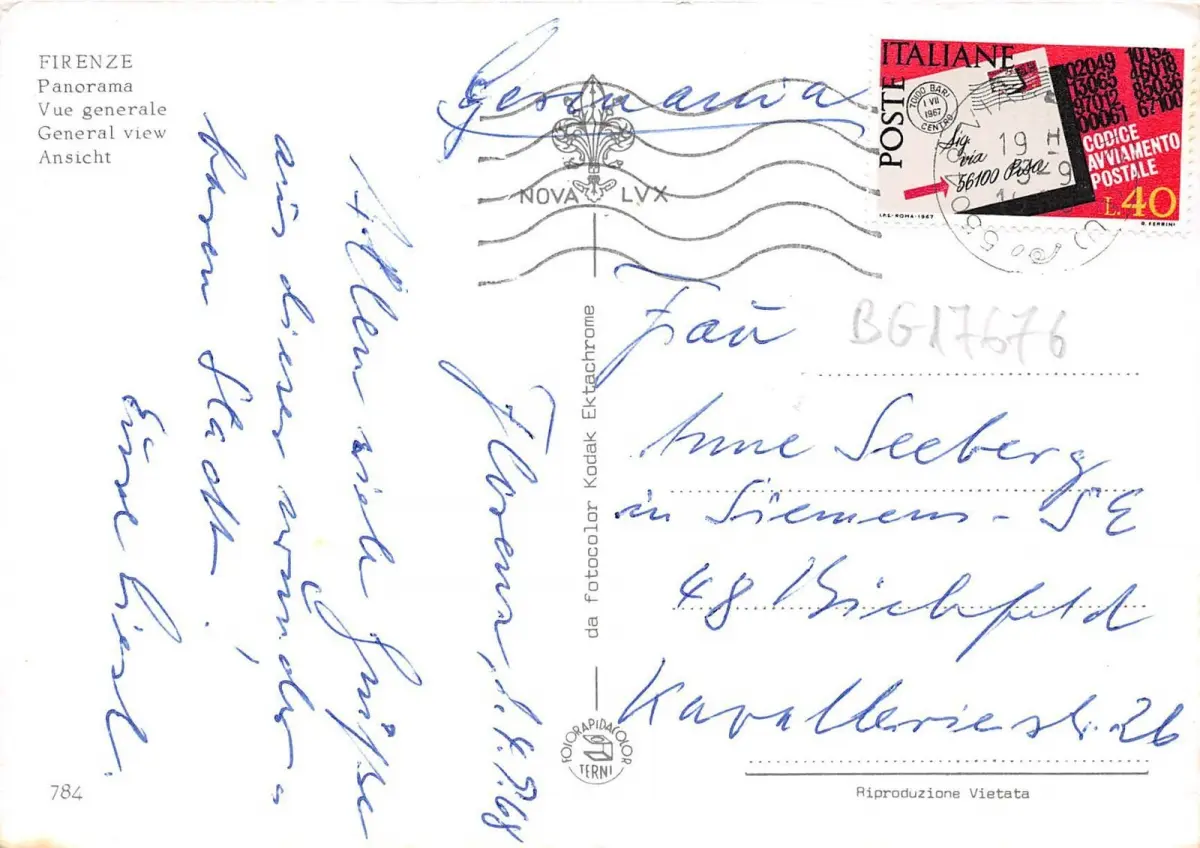 FIRENZE
Panorama
Vue generale
General view
Ansicht
Germania
POSTE ITALIANE
02049 10154
13065 46018
97012 85036
00061 67100
70100 BARI
1 VII
1967
CENTRO
Sig.
via
56100 Pisa
CODICE
AVVIAMENTO
POSTALE
L.40
I.P.S.-ROMA-1967
R. FERRINI
NOVA LVX
19 H
Florenz,
Allen viele Grüße
aus dieser wunder-
baren Stadt.
Eure Liesl.
Frau
BG17676
Anne Seeberg
in Siemens - SE
48 Bielefeld
Kavalleriestr. 26
da fotocolor Kodak Ektachrome
FOTORAPIDACOLOR
TERNI
784
Riproduzione Vietata